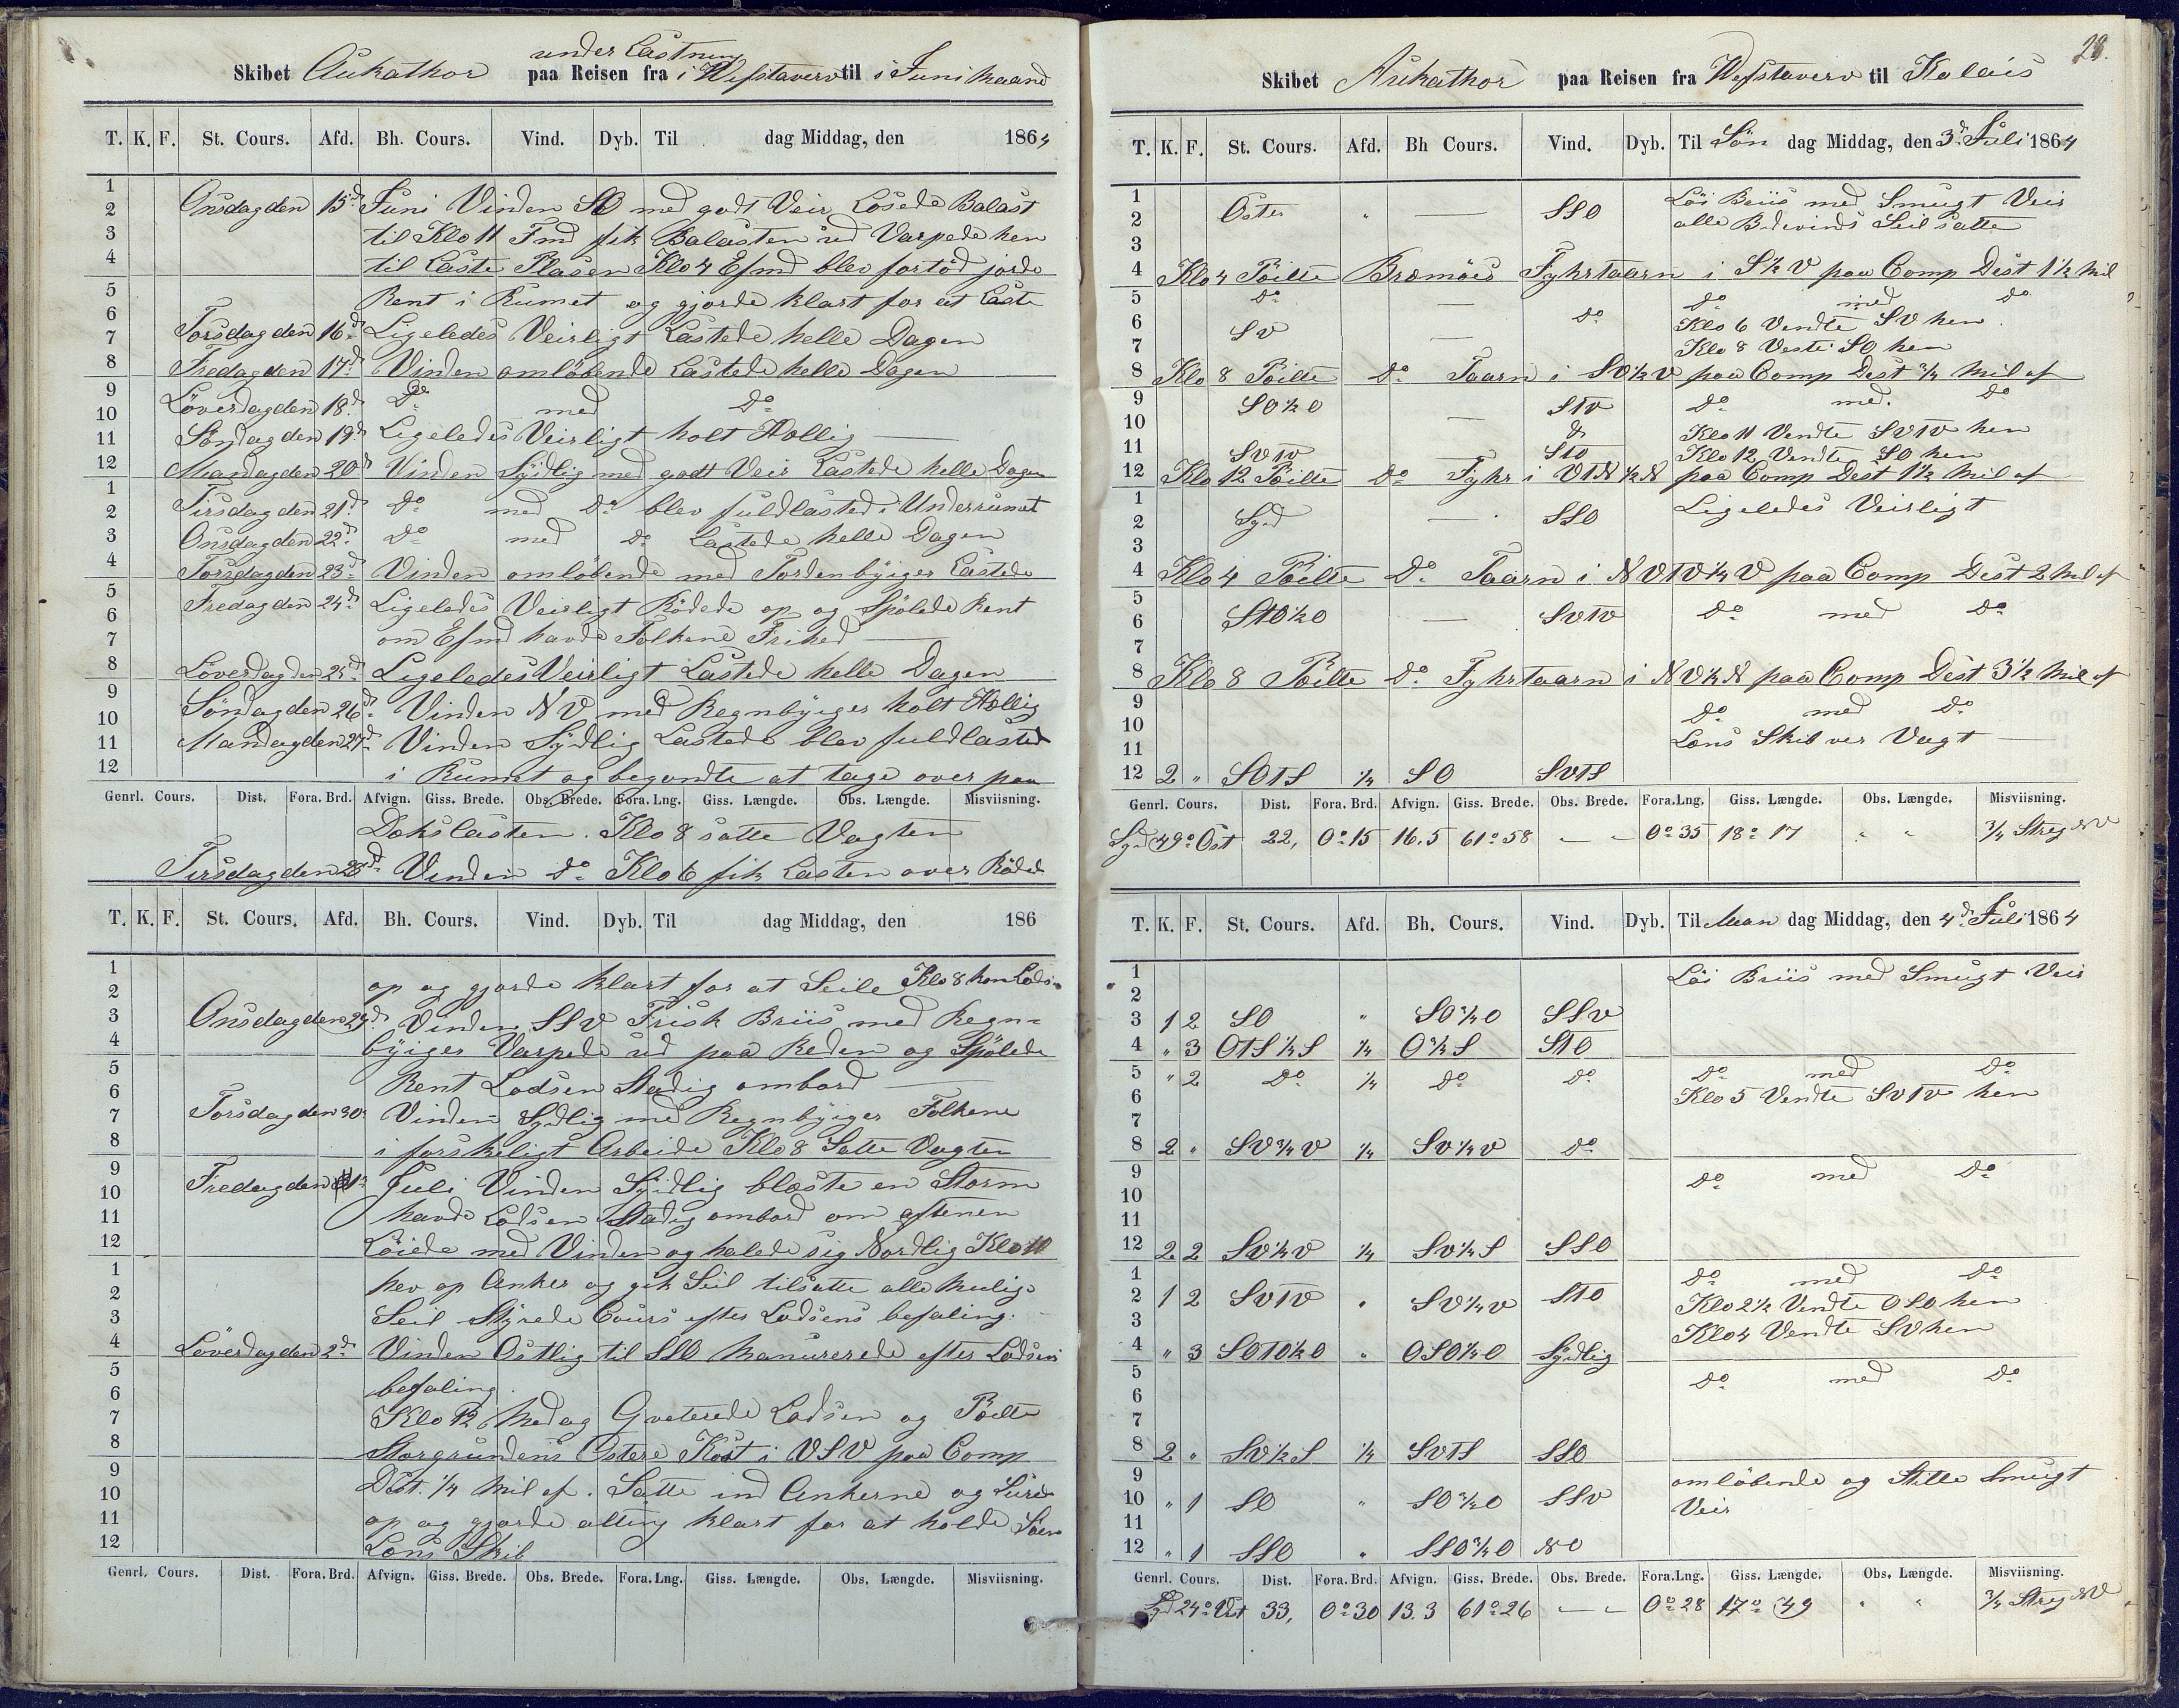 under Lastning
Skibet Aukathor paa Reisen fra i Wefstaverv til i Juni Maaned
T. K. F. St. Cours. Afd. Bh. Cours. Vind. Dyb. Til dag Middag, den 1864
1
2 Onsdagden 15d Juni Vinden SO med godt Veir Losede Balast
3 til Klo 11 Fmd fik Balasten ud Varpede hen
4 til Laste Plasen Klo 4 Efmd blev fortöd jorde
5 Rent i Rumet og gjorde klart for at Laste
6
7 Torsdagden 16d Ligeledes Veirligt Lastede helle Dagen
8 Fredagden 17d Vinden omlöbende Lastede helle Dagen
9 Löverdagden 18d Do med Do
10
11 Söndagden 19d Ligeledes Veirligt holt Hellig
12 Mandagden 20d Vinden Sydlig med godt Veir Lastede helle Dagen
1
2 Tirsdagden 21d Do med Do blev fuldlasted i Underrumet
3 Onsdagden 22d Do med Do Lastede helle Dagen
4 Torsdagden 23d Vinden omlöbende med Tordenbyiger Lastede
5 Fredagden 24d Ligeledes Veirligt Rödede op og Spölede Rent
6
7 om Efmd havde Folkene Frihed
8 Löverdagden 25d Ligeledes Veirligt Lastede helle Dagen
9 Söndagden 26d Vinden NV med Regnbyiger holt Hellig
10
11 Mandagden 27d Vinden Sydlig Lastede blev fuldlasted
12 i Rumet og begyndte at tage over paa
Genrl. Cours. Dist. Fora. Brd. Afvign. Giss. Brede. Obs. Brede. Fora. Lng. Giss. Længde. Obs. Længde. Misviisning.
Dokslasten. Klo 8 satte Vagten
Tirsdagden 28d Vinden Do Klo 6 fik Lasten over Röded
T. K. F. St. Cours. Afd. Bh. Cours. Vind. Dyb. Til dag Middag, den 186
1 op og gjorde klart for at Seile Klo 8 kom Lods
2
3 Onsdagden 29d Vinden SSV Frisk Briis med Regn=
4 byiger Varpede ud paa Reden og Spölede
5 Rent Lodsen Stadig ombord
6
7 Torsdagden 30 Vinden Sydlig med Regnbyiger Folkene
8 i forskeligt Arbeide Klo 8 Satte Vagten
9
10 Fredagden 1 Juli Vinden Sydlig bloste en Storm
11 havde Lodsen Stadig ombord om aftenen
12 Löiede med Vinden og halede sig Nordlig Klo 10
1 hev op Anker og gik Seil tilsatte alle mulige
2
3 Seil Styrede Cours efter Lodsens befaling.
4 Löverdagden 2d Vinden Ostlig til SSO Manurerede efter Lodsens
5 befaling.
6
7 Klo 12 Medag Qveterede Lodsen og Peilte
8 Storgrundens Ostere Kost i VSV paa Comp
9 Dist. 1/4 Mil af. Satte ind Ankerne og Surede
10
11 op og gjorde alting klart for at holde Söen
12 Lens Skib
Genrl. Cours. Dist. Fora. Brd. Afvign. Giss. Brede. Obs. Brede. Fora. Lng. Giss. Længde. Obs. Længde. Misviisning.
28.
Skibet Aukathor paa Reisen fra Wefstaverv til Kalais
T. K. F. St. Cours. Afd. Bh Cours. Vind. Dyb. Til Sön dag Middag, den 3d Juli 1864
1 Löi Briis med Smugt Veir
2 Oster " — SSO alle Bidevinds Seil satte
3
4 Klo 4 Peilte Bremöes Fyhrtaarn i S½V paa Comp Dist 1½ Mil
5 Do — Do med Do
6 SV Do Klo 6 Vendte SV hen
7 — Klo 8 Veste SO hen
8 Klo 8 Peilte Do Taarn i SV½V paa Comp Dist ¾ Mil af
9 SO½O STV Do med Do
10 — Do Klo 11 Vendte SVTV hen
11 SVTV STO Klo 12 Vendte SO hen
12 Klo 12 Peilte Do Fyhr i VTN½N paa Comp Dist 1½ Mil af
1 Ligeledes Veirligt
2 Syd — SSO
3
4 Klo 4 Peilte Do Taarn i NVTV¼V paa Comp Dist 2 Mil af
5
6 STO½O — SVTV Do med Do
7
8 Klo 8 Peilte Do Fyhrtaarn i NV½N paa Comp Dist 3½ Mil af
9 Do med Do
10
11 Lens Skib ver Vagt
12 2 " SOTS ¼ SO SVTS
Genrl. Cours. Dist. Fora. Brd. Afvign. Giss. Brede. Obs. Brede. Fora.Lng. Giss. Længde. Obs. Længde. Misviisning.
Syd 49o Ost 22, 0o 15 16.5 61o 58 — — 0o 35 18o 17 " " ¾ Streg NV
T. K. F. St. Cours. Afd. Bh. Cours. Vind. Dyb. Til Man dag Middag, den 4d Juli 1864
1 Löi Briis med Smugt Veir
2
3 1 2 SO " SO¾O SSV
4 " 3 OTS½S ¼ O¾S STO
5 " 2 Do ¼ Do Do Do med Do
6 Klo 5 Vendte SVTV hen
7
8 2 " SV¾V ¼ SV¼V Do
9 Do med Do
10
11
12 2 2 SV½V ¼ SV¼S SSO
1 Do med Do
2 1 2 SVTV " SV¼V STO Klo 2½ Vendte OSO hen
3 Klo 4 Vendte SV hen
4 " 3 SOTO½O " OSO¼O Sydlig
5 Do med Do
6
7
8 2 " SV½S ¼ SVTS SSO
9 omlöbende og Stille Smugt
10 " 1 SO " SO¾O SSV Veir
11
12 " 1 SSO " SSO¾O NO
Genrl. Cours. Dist. Fora. Brd. Afvign. Giss. Brede. Obs. Brede. Fora.Lng. Giss. Længde. Obs. Længde. Misviisning.
Syd 24o Vest 33, 0o 30 13.3 61o 26 — — 0o 28 17o 49 " " ¾ Streg NV